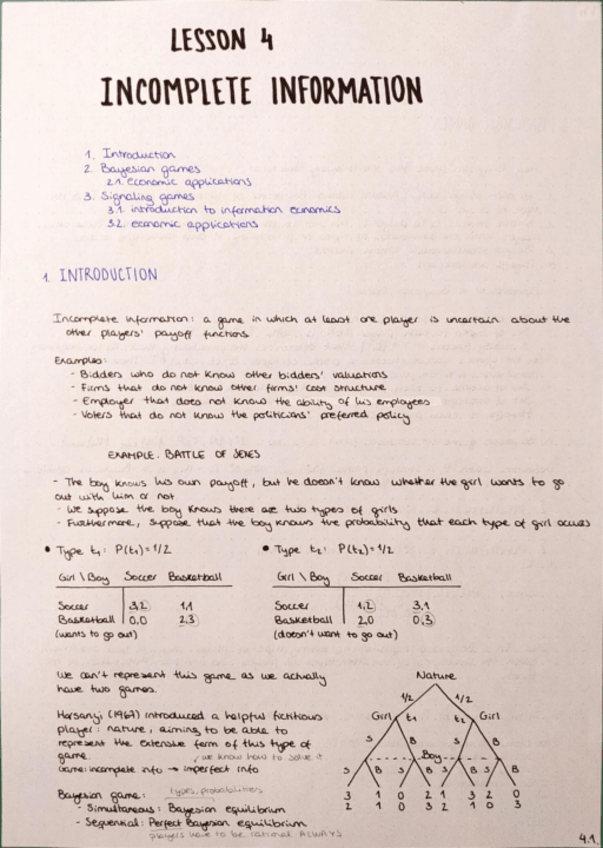 LESSON 4
INCOMPLETE INFORMATION
1. Introduction
2. Bayesian games
2.1. economic applications
3. Signaling games
3.1. introduction to information economics
3.2. economic applications
1. INTRODUCTION
Incomplete information: a game in which at least one player is uncertain about the
other players' payoff functions
Examples:
- Bidders who do not know other bidders' valuations
- Firms that do not know other firms' cost structure
- Employer that does not know the ability of his employees
- Voters that do not know the politicians' preferred policy
EXAMPLE. BATTLE OF SEXES
- The boy knows his own payoff, but he doesn't know whether the girl wants to go
out with him or not
- We suppose the boy knows there are two types of girls
- Furthermore, suppose that the boy knows the probability that each type of girl occurs
• Type t₁: P(t₁)=1/2 • Type t₂: P(t₂)=1/2
Girl \ Boy Soccer Basketball Girl \ Boy Soccer Basketball
Soccer 3,2 1,1 Soccer 1,2 3,1
Basketball 0,0 2,3 Basketball 2,0 0,3
(wants to go out) (doesn't want to go out)
We can't represent this game as we actually
have two games.
Harsanyi (1967) introduced a helpful fictitious
player: nature, aiming to be able to
represent the extensive form of this type of
game.
we know how to solve it
Game: incomplete info → imperfect info
Bayesian game: types, probabilities
- Simultaneous: Bayesian equilibrium
- Sequential: Perfect Bayesian equilibrium
players have to be rational ALWAYS
Nature
1/2 1/2
Girl t₁ t₂ Girl
S B S B
Boy
S B S B S B S B
3 1 0 2 1 3 2 0
2 1 0 3 2 1 0 3
4.1.